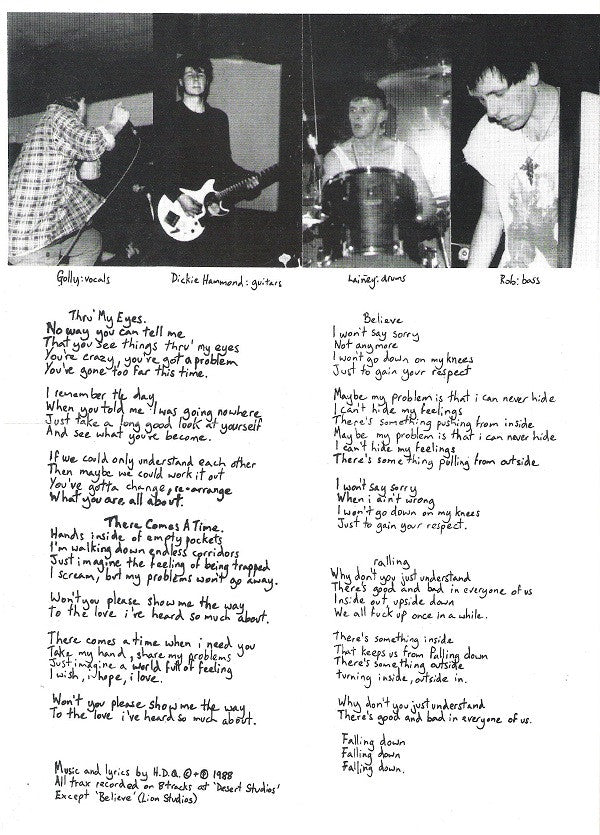 Golly: vocals
Dickie Hammond: guitars
Lainey: drums
Rob: bass
Thru' My Eyes.
No way you can tell me
That you see things thru' my eyes
You're crazy, you've got a problem
You've gone too far this time.
I remember the day
When you told me I was going nowhere
Just take a long good look at yourself
And see what you've become.
If we could only understand each other
Then maybe we could work it out
You've gotta change, re-arrange
What you are all about.
There Comes A Time.
Hands inside of empty pockets
I'm walking down endless corridors
Just imagine the feeling of being trapped
I scream, but my problems won't go away.
Won't you please show me the way
To the love i've heard so much about.
There comes a time when i need you
Take my hand, share my problems
Just imagine a world full of feeling
I wish, i hope, i love.
Won't you please show me the way
To the love i've heard so much about.
Music and lyrics by H.D.Q. ©+℗ 1988
All trax recorded on 8tracks at 'Desert Studios'
Except 'Believe' (Lion Studios)
Believe
I won't say sorry
Not anymore
I won't go down on my knees
Just to gain your respect
Maybe my problem is that i can never hide
I can't hide my feelings
There's something pushing from inside
Maybe my problem is that i can never hide
I can't hide my feelings
There's something pulling from outside
I won't say sorry
When i ain't wrong
I won't go down on my knees
Just to gain your respect.
Falling
Why don't you just understand
There's good and bad in everyone of us
Inside out upside down
We all fuck up once in a while.
There's something inside
That keeps us from falling down
There's something outside
turning inside, outside in.
Why don't you just understand
There's good and bad in everyone of us.
Falling down
Falling down
Falling down.